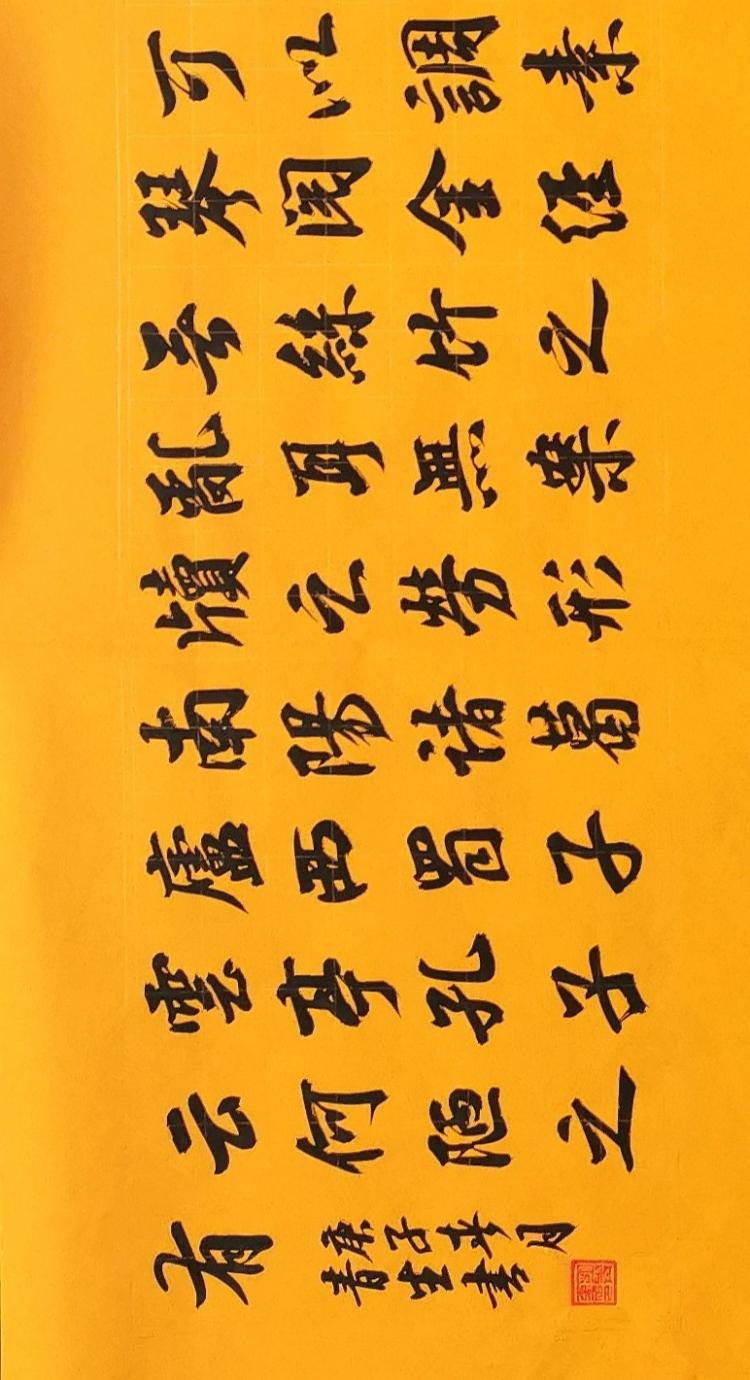 可以調素
琴閱金經
无絲竹之
亂耳無案
牘之勞形
南陽諸葛
廬西蜀子
雲亭孔子
云何陋之
有
庚子月
生書